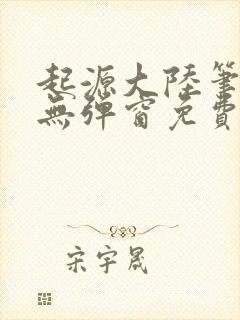 起源大陸筆
無彈窗免費
宋宇晟